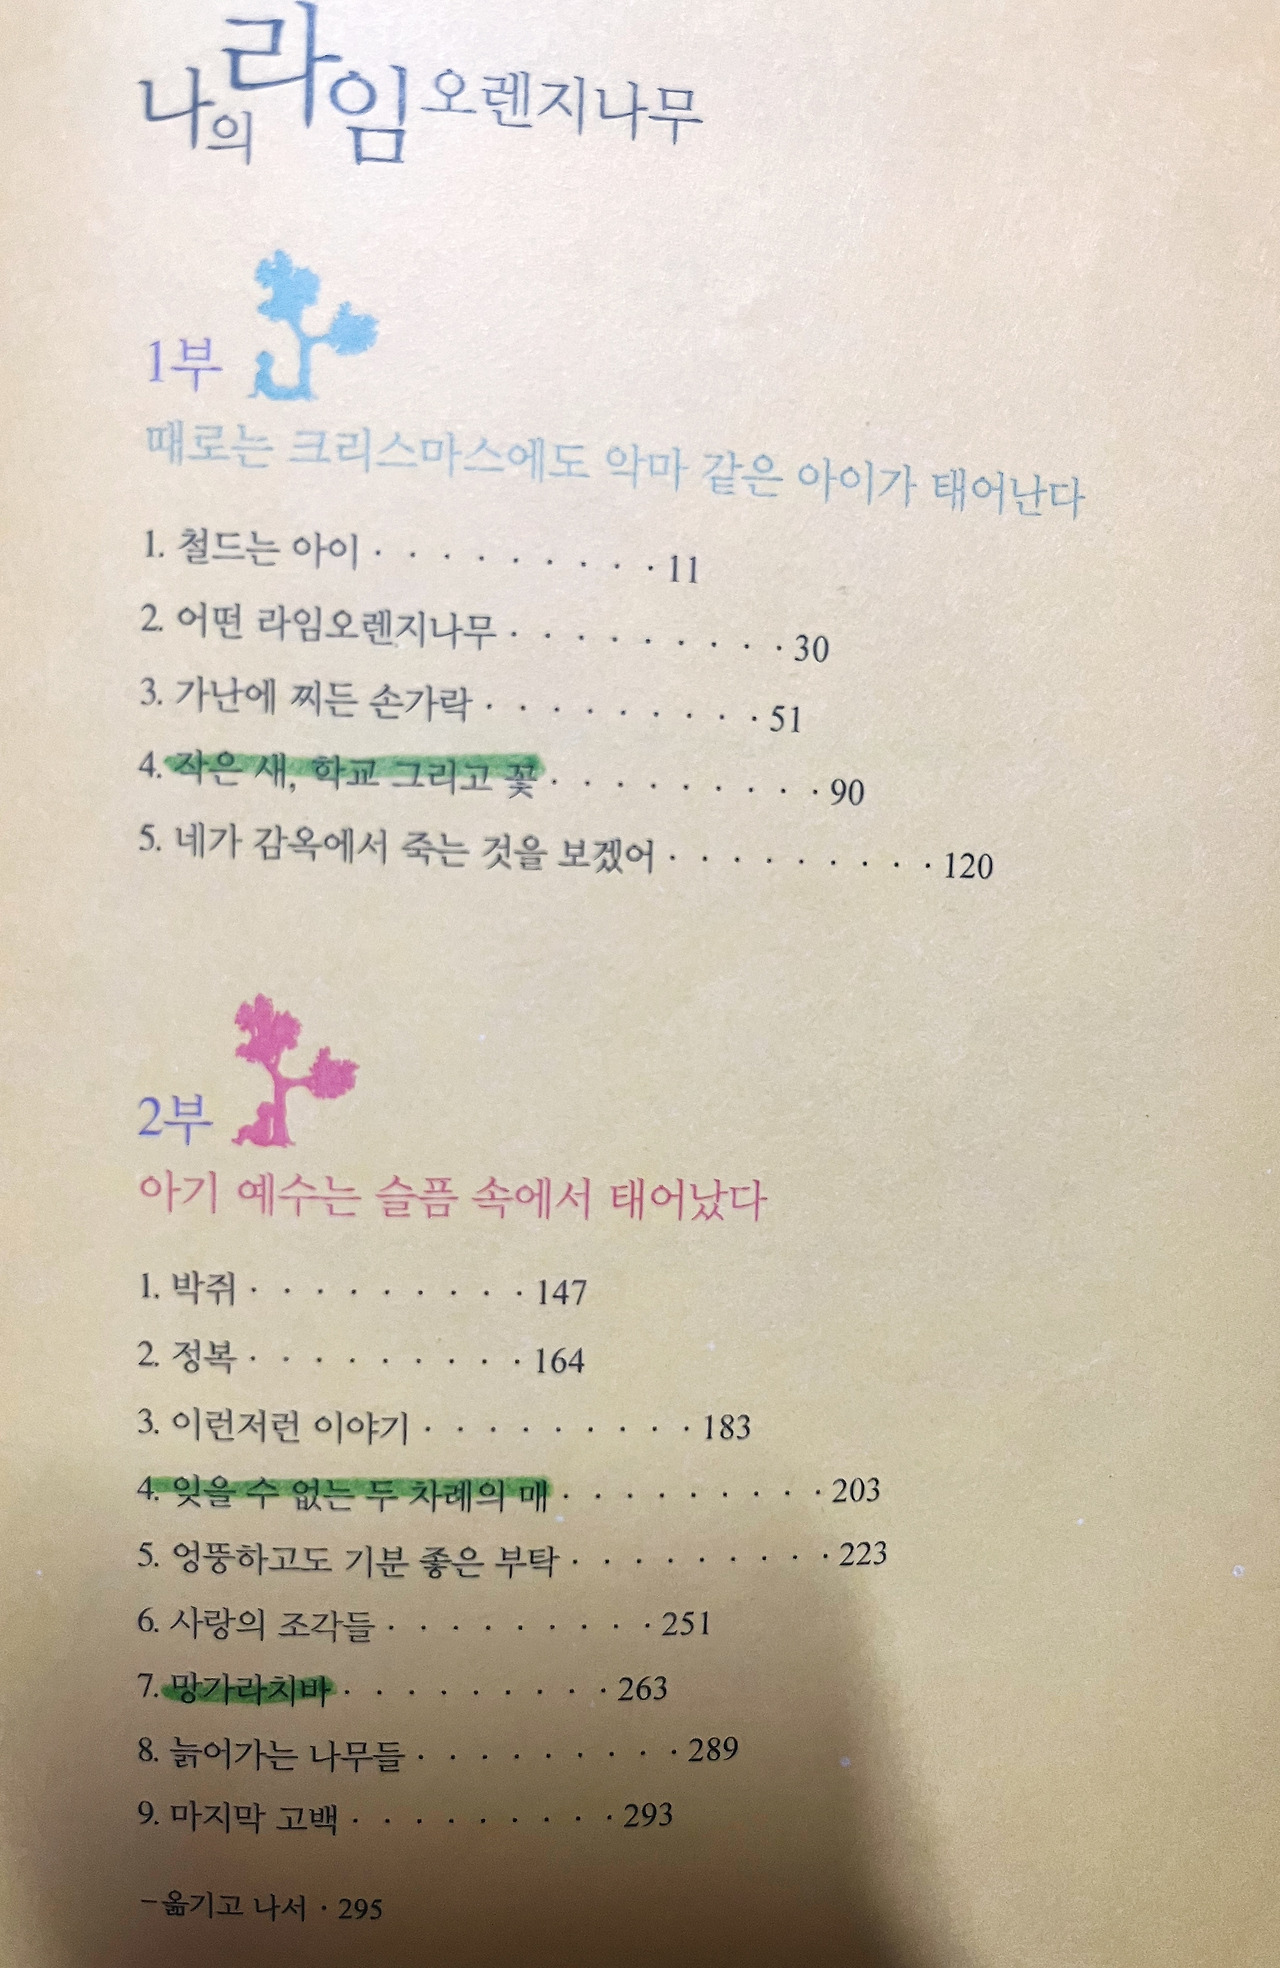 나의 라임오렌지나무
1부
때로는 크리스마스에도 악마 같은 아이가 태어난다
1. 철드는 아이 · · · · · · · · · 11
2. 어떤 라임오렌지나무 · · · · · · · · · 30
3. 가난에 찌든 손가락 · · · · · · · · · 51
4. 작은 새, 학교 그리고 꽃 · · · · · · · · · 90
5. 네가 감옥에서 죽는 것을 보겠어 · · · · · · · · · 120
2부
아기 예수는 슬픔 속에서 태어났다
1. 박쥐 · · · · · · · · · 147
2. 정복 · · · · · · · · · 164
3. 이런저런 이야기 · · · · · · · · · 183
4. 잊을 수 없는 두 차례의 매 · · · · · · · · · 203
5. 엉뚱하고도 기분 좋은 부탁 · · · · · · · · · 223
6. 사랑의 조각들 · · · · · · · · · 251
7. 망가라치바 · · · · · · · · · 263
8. 늙어가는 나무들 · · · · · · · · · 289
9. 마지막 고백 · · · · · · · · · 293
-옮기고 나서 · 295